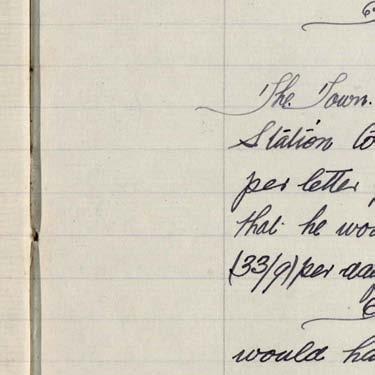 The Town
Station Co
per letter
that he wou
(33/9) per day
would ha